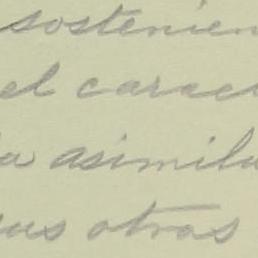 sostenien
el carac
a asimila
sus otras